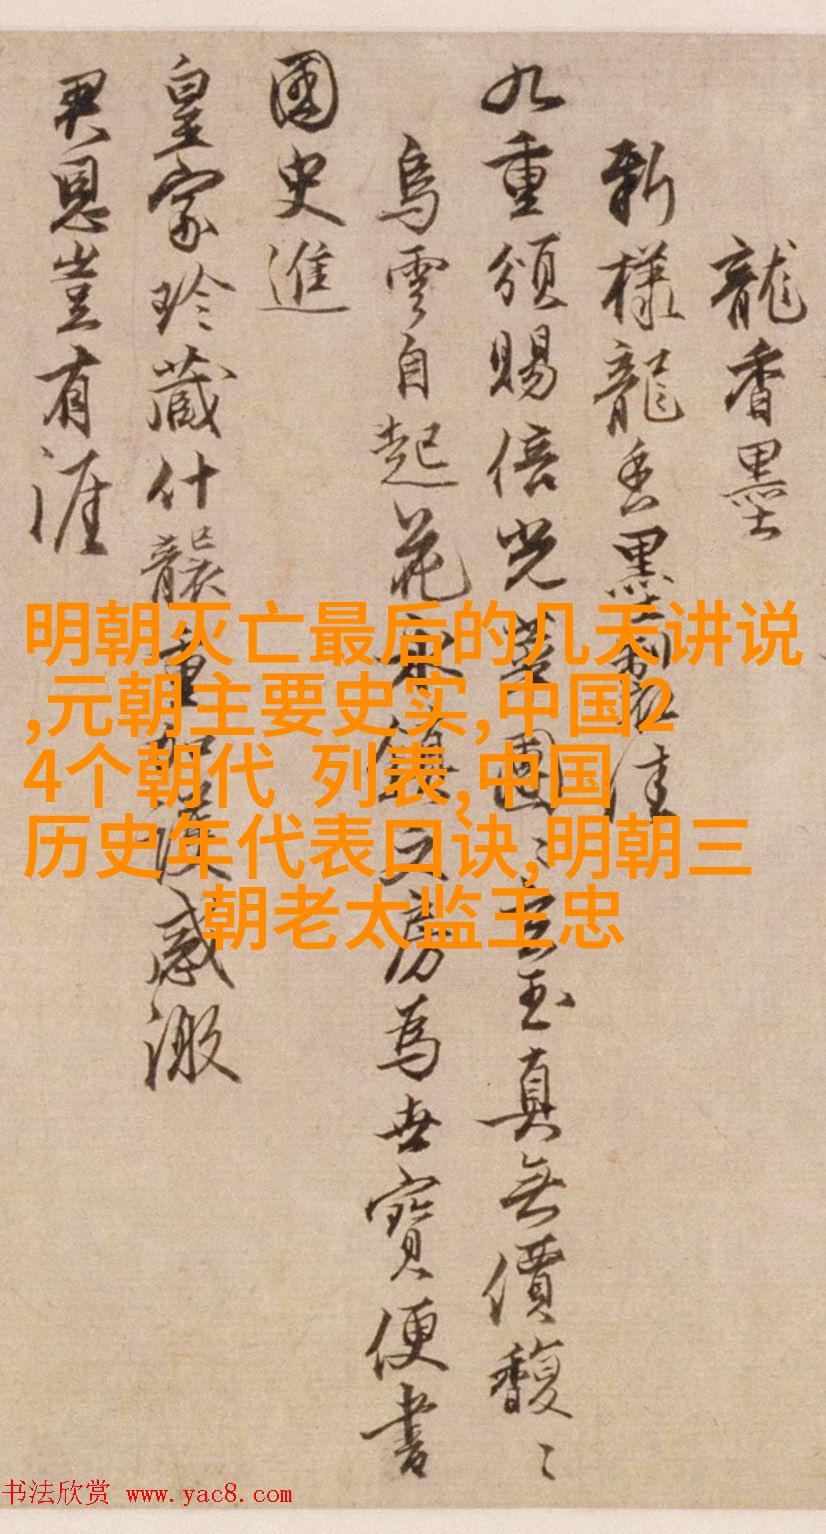 龍香墨
新様龍香墨製佳
九重頒賜倍光華團〻玄玉真無價馥〻
烏雲自起花永鎮文房為世寶便書
國史進
皇家珍藏什襲重如護感激
君恩豈有涯
明朝灭亡最后的几天讲说
,元朝主要史实,中国2
4个朝代 列表,中国
历史年代表口诀,明朝三
朝老太监王忠
书法欣赏 www.yac8.com